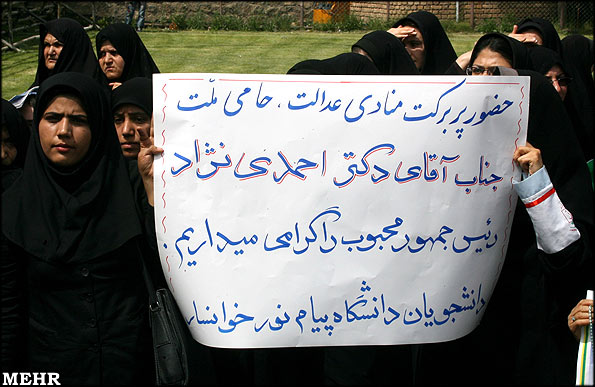 حضور پر برکت منادی عدالت، حامی ملّت
جناب آقای دکتر احمدی نژاد
رئیس جمهور محبوب را گرامی میداریم.
دانشجویان دانشگاه پیام نور خوانسار
MEHR